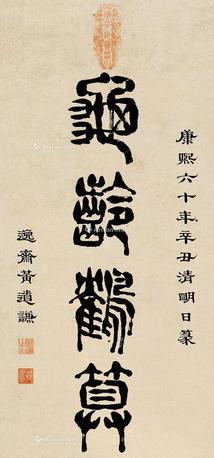 康熙六十年辛丑清明日篆
龜齡鶴算
逸齋黃道謙